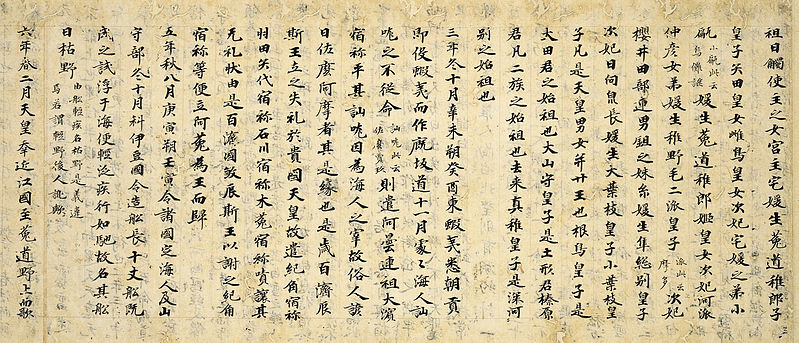 祖日觸使主之女宮主宅媛生菟道稚郎子
皇子矢田皇女雌鳥皇女次妃宅媛之弟小
甂小甂此云烏儺謎媛生菟道稚郎姬皇女次妃河派
仲彥女弟媛生稚野毛二派皇子派此云摩多次妃
櫻井田部連男鉏之妹糸媛生隼総別皇子
次妃日向泉長媛生大葉枝皇子小葉枝皇
子凡是天皇男女并廿王也根鳥皇子是
大田君之始祖也大山守皇子是土形君榛原
君凡二族之始祖也去来真稚皇子是深河
別之始祖也
三年冬十月辛未朔癸酉東蝦夷悉朝貢
即役蝦夷而作厩坂道十一月處々海人訕
哤之不從命訕哤此云佐麼賣玖則遣阿曇連祖大濱
宿祢平其訕哤因為海人之宰故俗人諺
曰佐麼阿摩者其是緣也是歲百濟辰
斯王立之失礼於貴國天皇故遣紀角宿祢
羽田矢代宿祢石川宿祢木菟宿祢嘖讓其
无礼狀由是百濟國敦辰斯王以謝之紀角
宿祢等便立阿菀為王而歸
五年秋八月庚寅朔壬寅令諸國定海人及山
守部冬十月科伊豆國令造舩長十丈舩既
成之試浮于海便輕泛疾行如馳故名其舩
曰枯野由舩輕疾名枯野是義違焉若謂輕野後人訛歟
六年春二月天皇幸近江國至菟道野上而歌